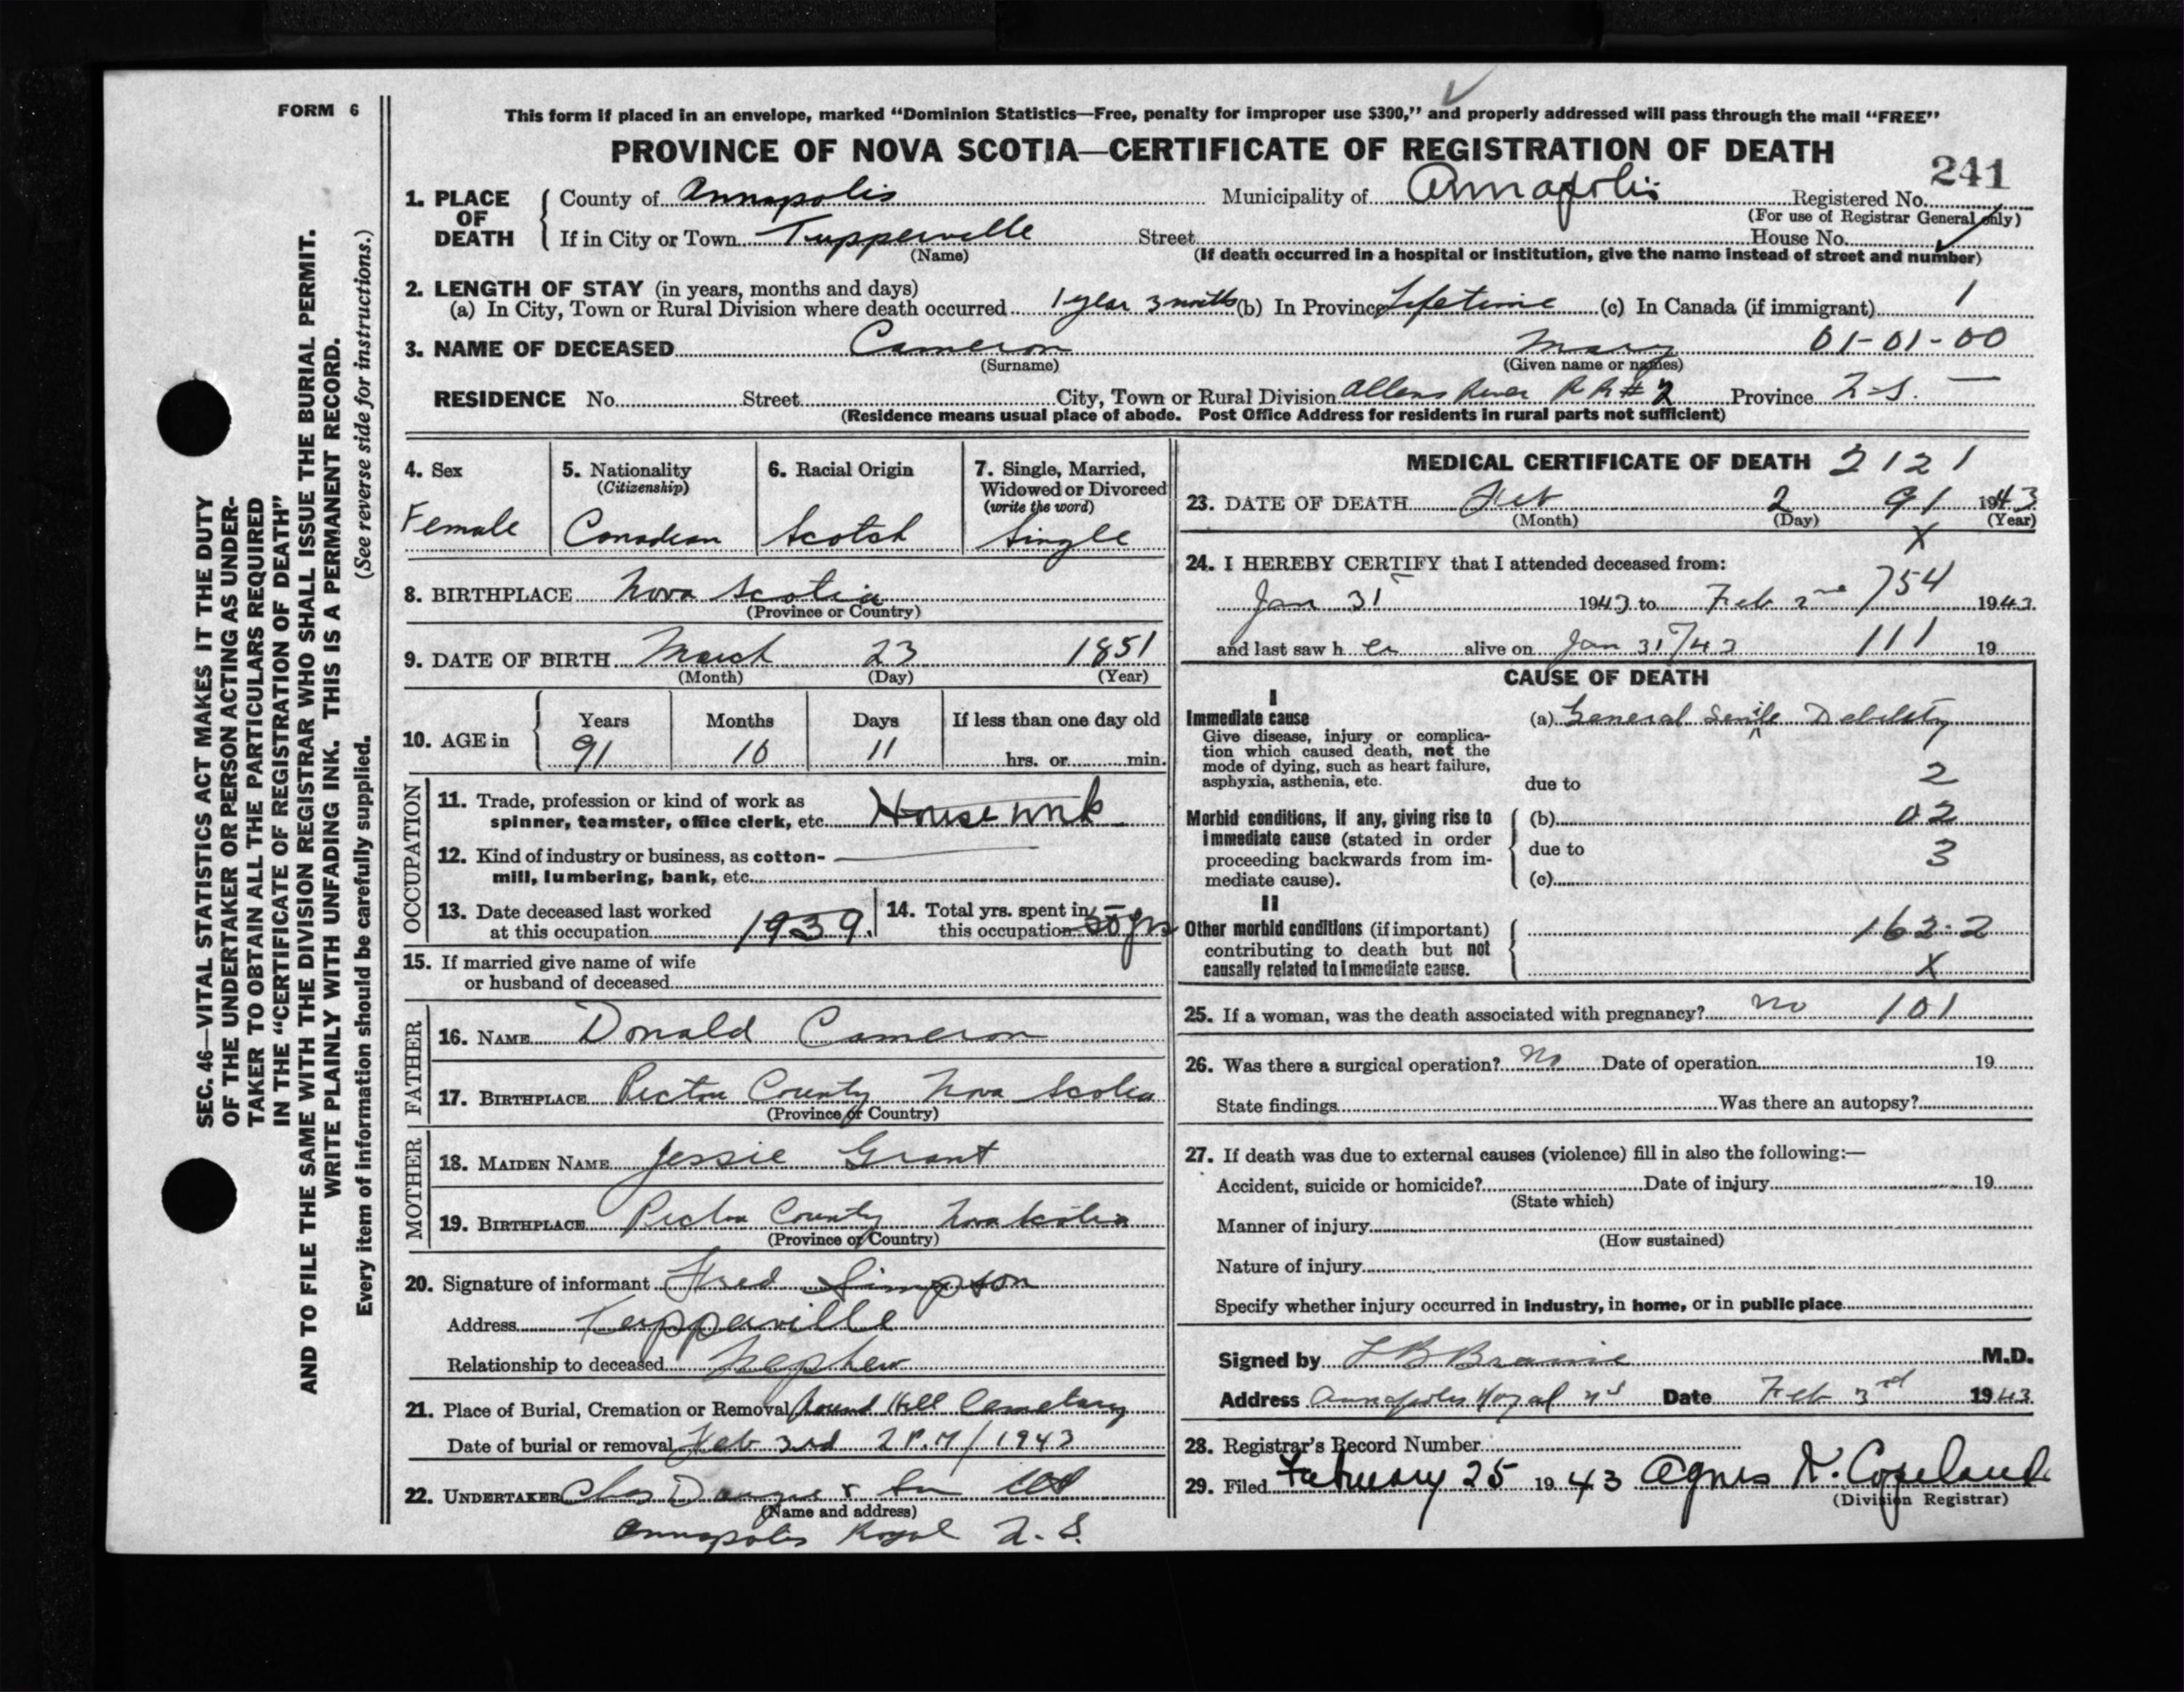 FORM 6
SEC. 46—VITAL STATISTICS ACT MAKES IT THE DUTY
OF THE UNDERTAKER OR PERSON ACTING AS UNDER-
TAKER TO OBTAIN ALL THE PARTICULARS REQUIRED
IN THE "CERTIFICATE OF REGISTRATION OF DEATH"
AND TO FILE THE SAME WITH THE DIVISION REGISTRAR WHO SHALL ISSUE THE BURIAL PERMIT.
WRITE PLAINLY WITH UNFADING INK. THIS IS A PERMANENT RECORD.
Every item of information should be carefully supplied. (See reverse side for instructions.)
This form if placed in an envelope, marked "Dominion Statistics—Free, penalty for improper use $300," and properly addressed will pass through the mail "FREE"
PROVINCE OF NOVA SCOTIA—CERTIFICATE OF REGISTRATION OF DEATH
241
1. PLACE OF DEATH County of Annapolis Municipality of Annapolis Registered No.
(For use of Registrar General only)
If in City or Town Tupperville Street House No.
(Name) (If death occurred in a hospital or institution, give the name instead of street and number)
2. LENGTH OF STAY (in years, months and days)
(a) In City, Town or Rural Division where death occurred 1 year 3 months (b) In Province Lifetime (c) In Canada (if immigrant) 1
3. NAME OF DECEASED Cameron Mary 01-01-00
(Surname) (Given name or names)
RESIDENCE No. Street City, Town or Rural Division Allens River R R # 2 Province N.S.
(Residence means usual place of abode. Post Office Address for residents in rural parts not sufficient)
4. Sex Female
5. Nationality (Citizenship) Canadian
6. Racial Origin Scotch
7. Single, Married, Widowed or Divorced (write the word) Single
8. BIRTHPLACE Nova Scotia
(Province or Country)
9. DATE OF BIRTH March 23 1851
(Month) (Day) (Year)
10. AGE in Years 91 Months 10 Days 11 If less than one day old hrs. or min.
OCCUPATION
11. Trade, profession or kind of work as
spinner, teamster, office clerk, etc. House work
12. Kind of industry or business, as cotton-
mill, lumbering, bank, etc.
13. Date deceased last worked
at this occupation 1939.
14. Total yrs. spent in
this occupation 50 yrs
15. If married give name of wife
or husband of deceased
FATHER
16. NAME Donald Cameron
17. BIRTHPLACE Pictou County Nova Scotia
(Province or Country)
MOTHER
18. MAIDEN NAME Jessie Grant
19. BIRTHPLACE Pictou County Nova Scotia
(Province or Country)
20. Signature of informant Fred Simpson
Address Tupperville
Relationship to deceased Nephew
21. Place of Burial, Cremation or Removal Round Hill Cemetary
Date of burial or removal Feb 3rd 2 P.M / 1943
22. UNDERTAKER Chas & Son
(Name and address)
Annapolis Royal N. S.
MEDICAL CERTIFICATE OF DEATH 2121
23. DATE OF DEATH Feb 2 91 1943
(Month) (Day) (Year)
X
24. I HEREBY CERTIFY that I attended deceased from:
Jan 31 1943 to Feb 2nd 754 1943
and last saw h er alive on Jan 31/43 111 19
CAUSE OF DEATH
I
Immediate cause (a) General Senile Debility
Give disease, injury or complica-
tion which caused death, not the
mode of dying, such as heart failure,
asphyxia, asthenia, etc. due to
1
2
Morbid conditions, if any, giving rise to (b) 02
immediate cause (stated in order due to 3
proceeding backwards from im-
mediate cause). (c)
II
Other morbid conditions (if important) 162.2
contributing to death but not
causally related to immediate cause. X
25. If a woman, was the death associated with pregnancy? no 101
26. Was there a surgical operation? no Date of operation 19
State findings Was there an autopsy?
27. If death was due to external causes (violence) fill in also the following:—
Accident, suicide or homicide? Date of injury 19
(State which)
Manner of injury
(How sustained)
Nature of injury
Specify whether injury occurred in industry, in home, or in public place
Signed by L B Braine M.D.
Address Annapolis Royal N S Date Feb 3rd 1943
28. Registrar's Record Number
29. Filed February 25 1943 Agnes K. Copeland
(Division Registrar)